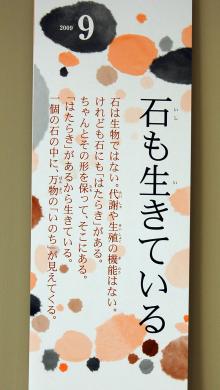 2009
9
石も生きている
石は生物ではない。代謝や生殖の機能はない。
けれども石にも「はたらき」がある。
ちゃんとその形を保って、そこにある。
「はたらき」があるから生きている。
一個の石の中に、万物の「いのち」が見えてくる。